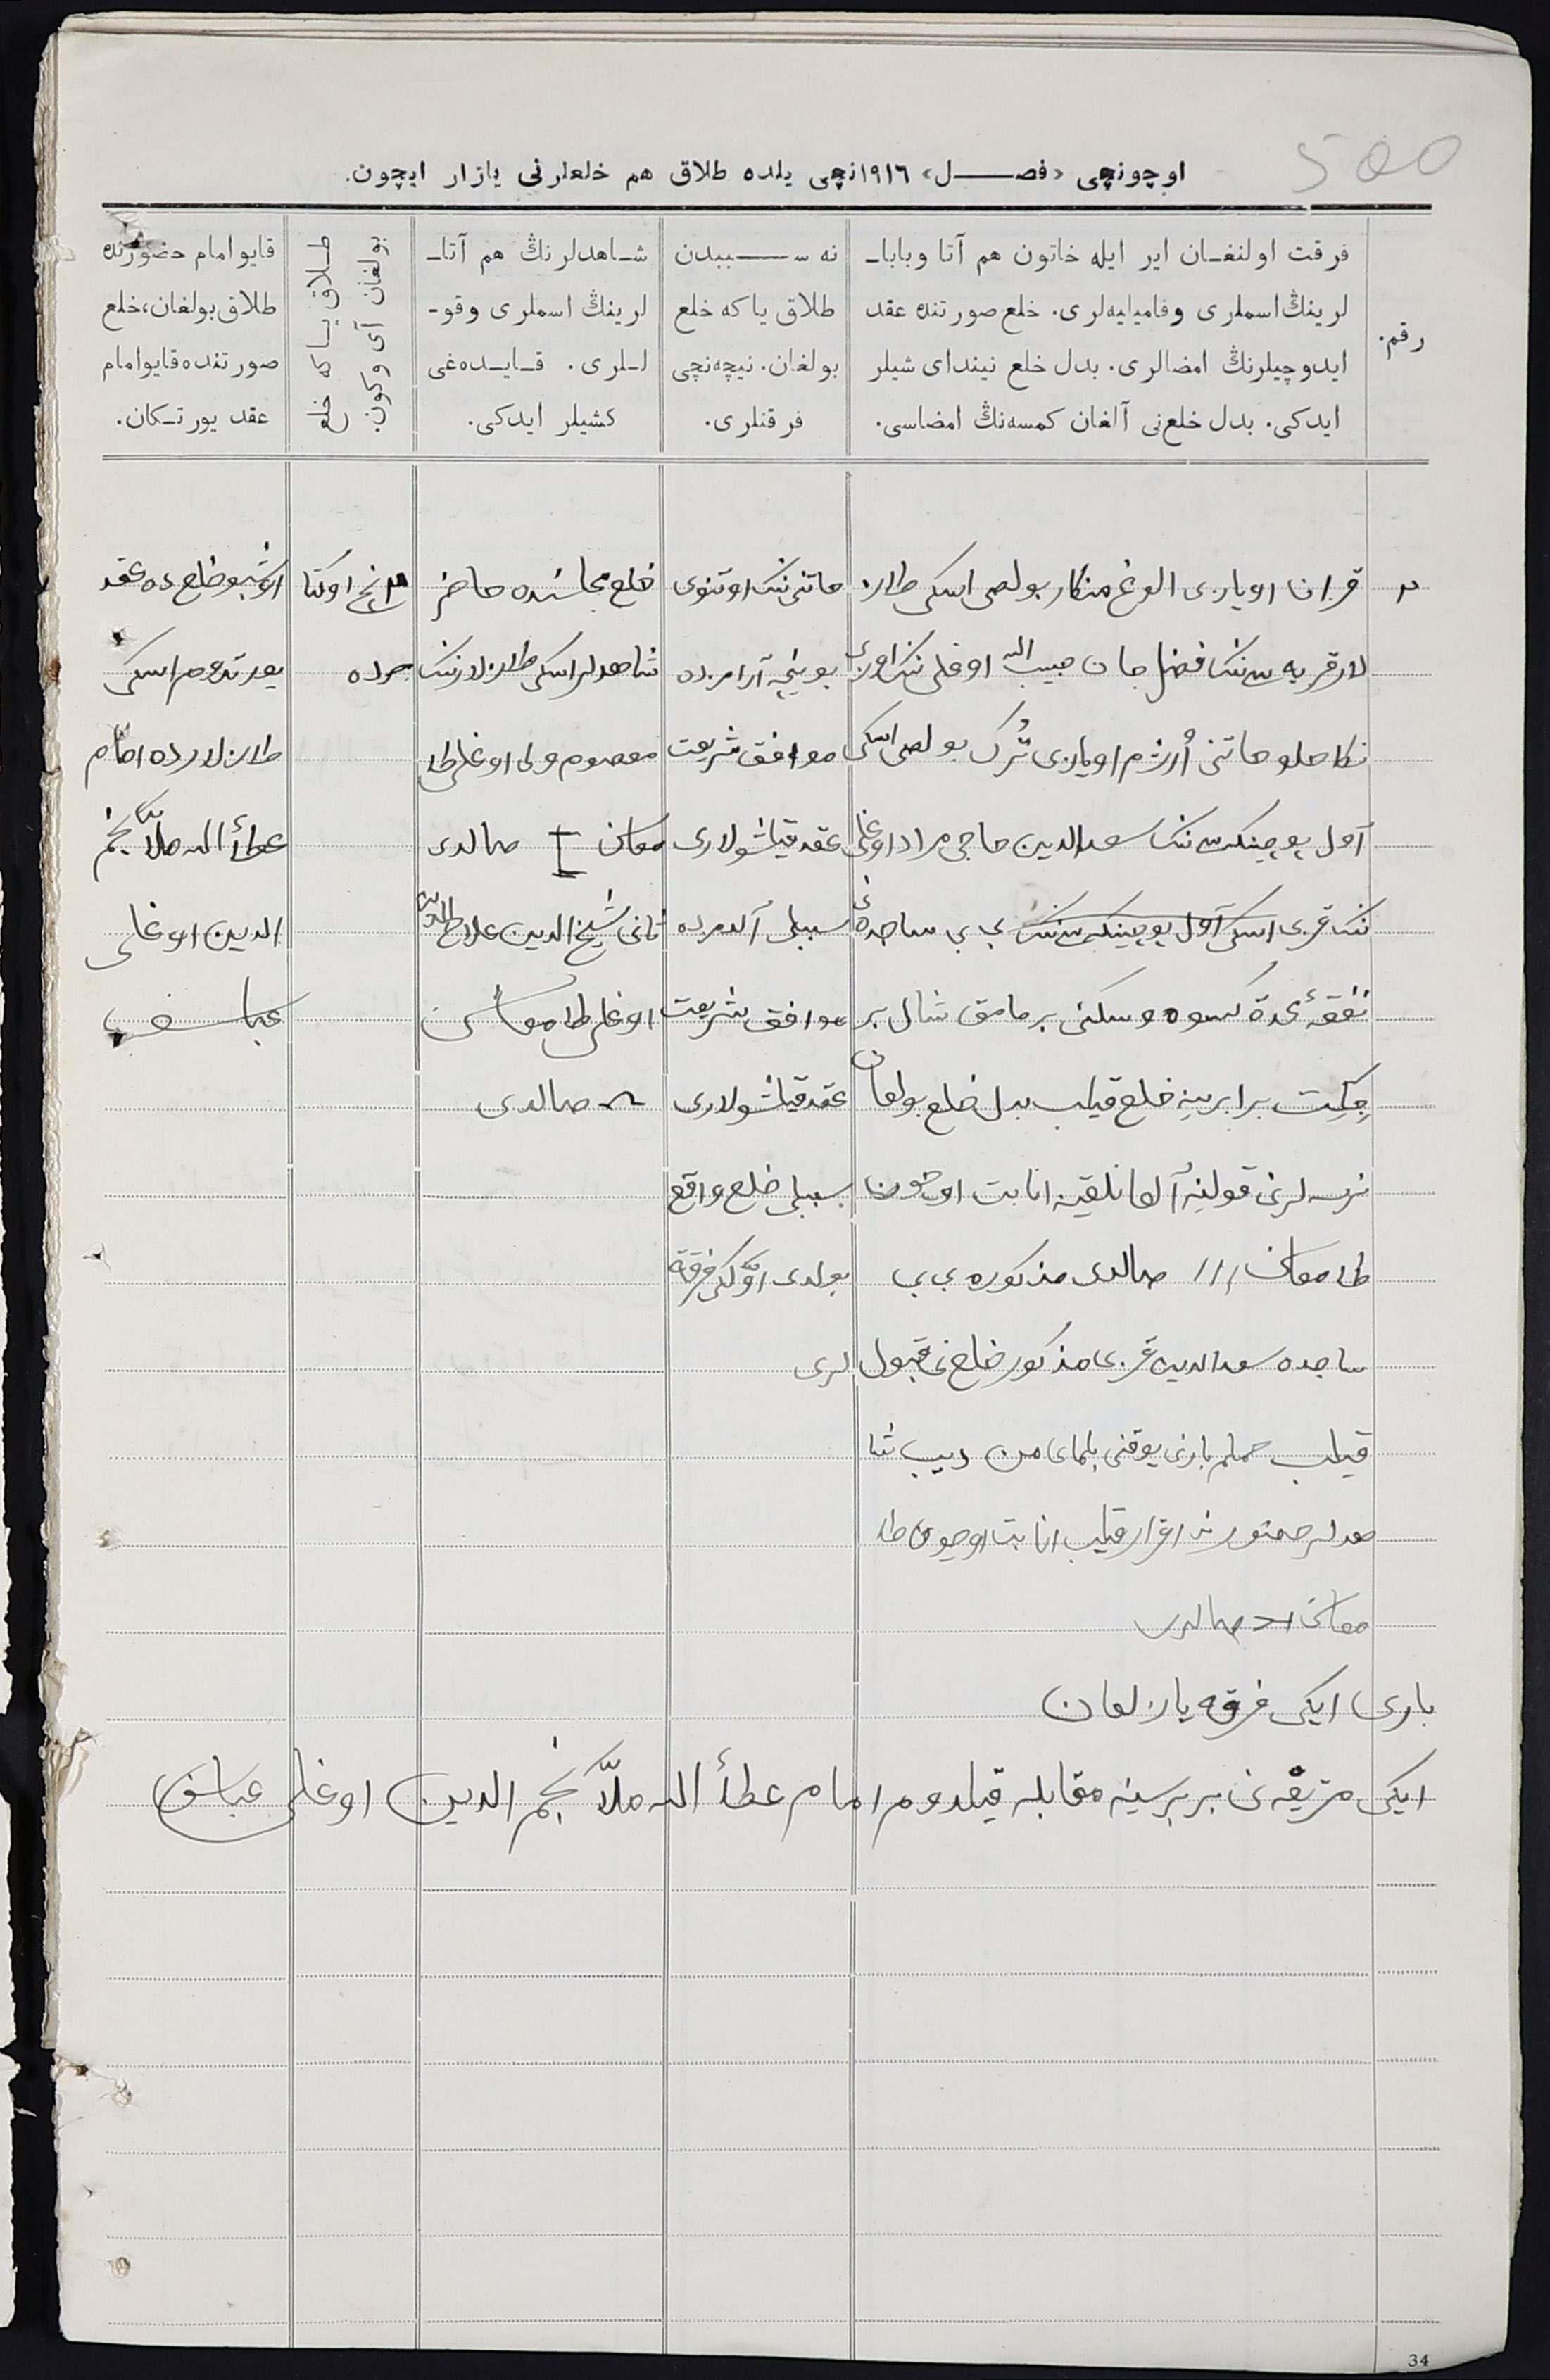 500
اوچونچی «فصـــل» ١٩١٦نچی یلده طلاق هم خلعلرنی یازار ایچون.
رقم.
فرقت اولنغـان ایر ایله خاتون هم آتا وبابا-
لرینڭ اسملری وفامیلیه‌لری. خلع صورتنده عقد
ایدوچیلرنڭ امضالری. بدل خلع نیندای شیلر
ایدکی. بدل خلع‌نی آلغان کمسه‌نڭ امضاسی.
نه ســـببدن
طلاق یا که خلع
بولغان. نیچه‌نچی
فرقتلری.
شـاهدلرنڭ هم آتا-
لرینڭ اسملری وقو-
لـلری. قـایـده‌غی
کشیلر ایدکی.
طـلاق یـا که خلع
بولغان آی وکون.
قایو امام حضورنده
طلاق بولغان، خلع
صورتنده قایو امام
عقد یورتـکان.
٢
قزان اویازی الوغ منکار بولصی اسکی طاز
لار قریه سی ننك فضل جان حبیب الله اوغلی ننك اوزی
نکاحلو خاتنی أرژم اویازی تُرك بولصی اسکی
آول پوچینکه سی ننك سعدالدین حاجی مراد اوغلی
ننك قزی اسکی آول پوچینکه سی ننك بی بی ساجدة نی
نفقهٔ عدة کسوه وسکنی بر مامق شال بر
چکیت برابرینه خلع قیلب بدل خلع بولغان
نرسه لرنی قولینه آلغانلقینه انابت اوچون
طامغاسن /// صالدی مذکوره بی بی
ساجده سعدالدین قزی مذکور خلع نی قبول
قیلب حملم بارنی یوقنی بلمای من دیب شا
هدلر حضورنده اقرار قیلب انابت اوچون طا
مغاسن صالدی
خاتنی ننك اوتنوی
بوینچه آرامزده
موافق شریعت
عقد قیلشولاری
سببلی آلدمزده
موافق شریعت
عقد قیلشولاری
سببلی خلع واقع
بولدی اوّلکی فرقت
لری
خلع مجلسنده حاضر
شاهدلر اسکی طازلارننك
معصوم ولی اوغلی طا
مغاسن صالدی
ثانی شیخ الدین علاج الدین
اوغلی طامغاسن
صالدی
نچی اوکتا
برده
اوشبو خلع ده عقد
یورتدم اسکی
طازلارده امام
عطأ الله ملّا نجم
الدین اوغلی
عباسف
باری ایکی فرقه یازلغان
ایکی متریقه نی بربرسینه مقابله قیلدوم امام عطأ الله ملّا نجم الدین اوغلی عباسف
34